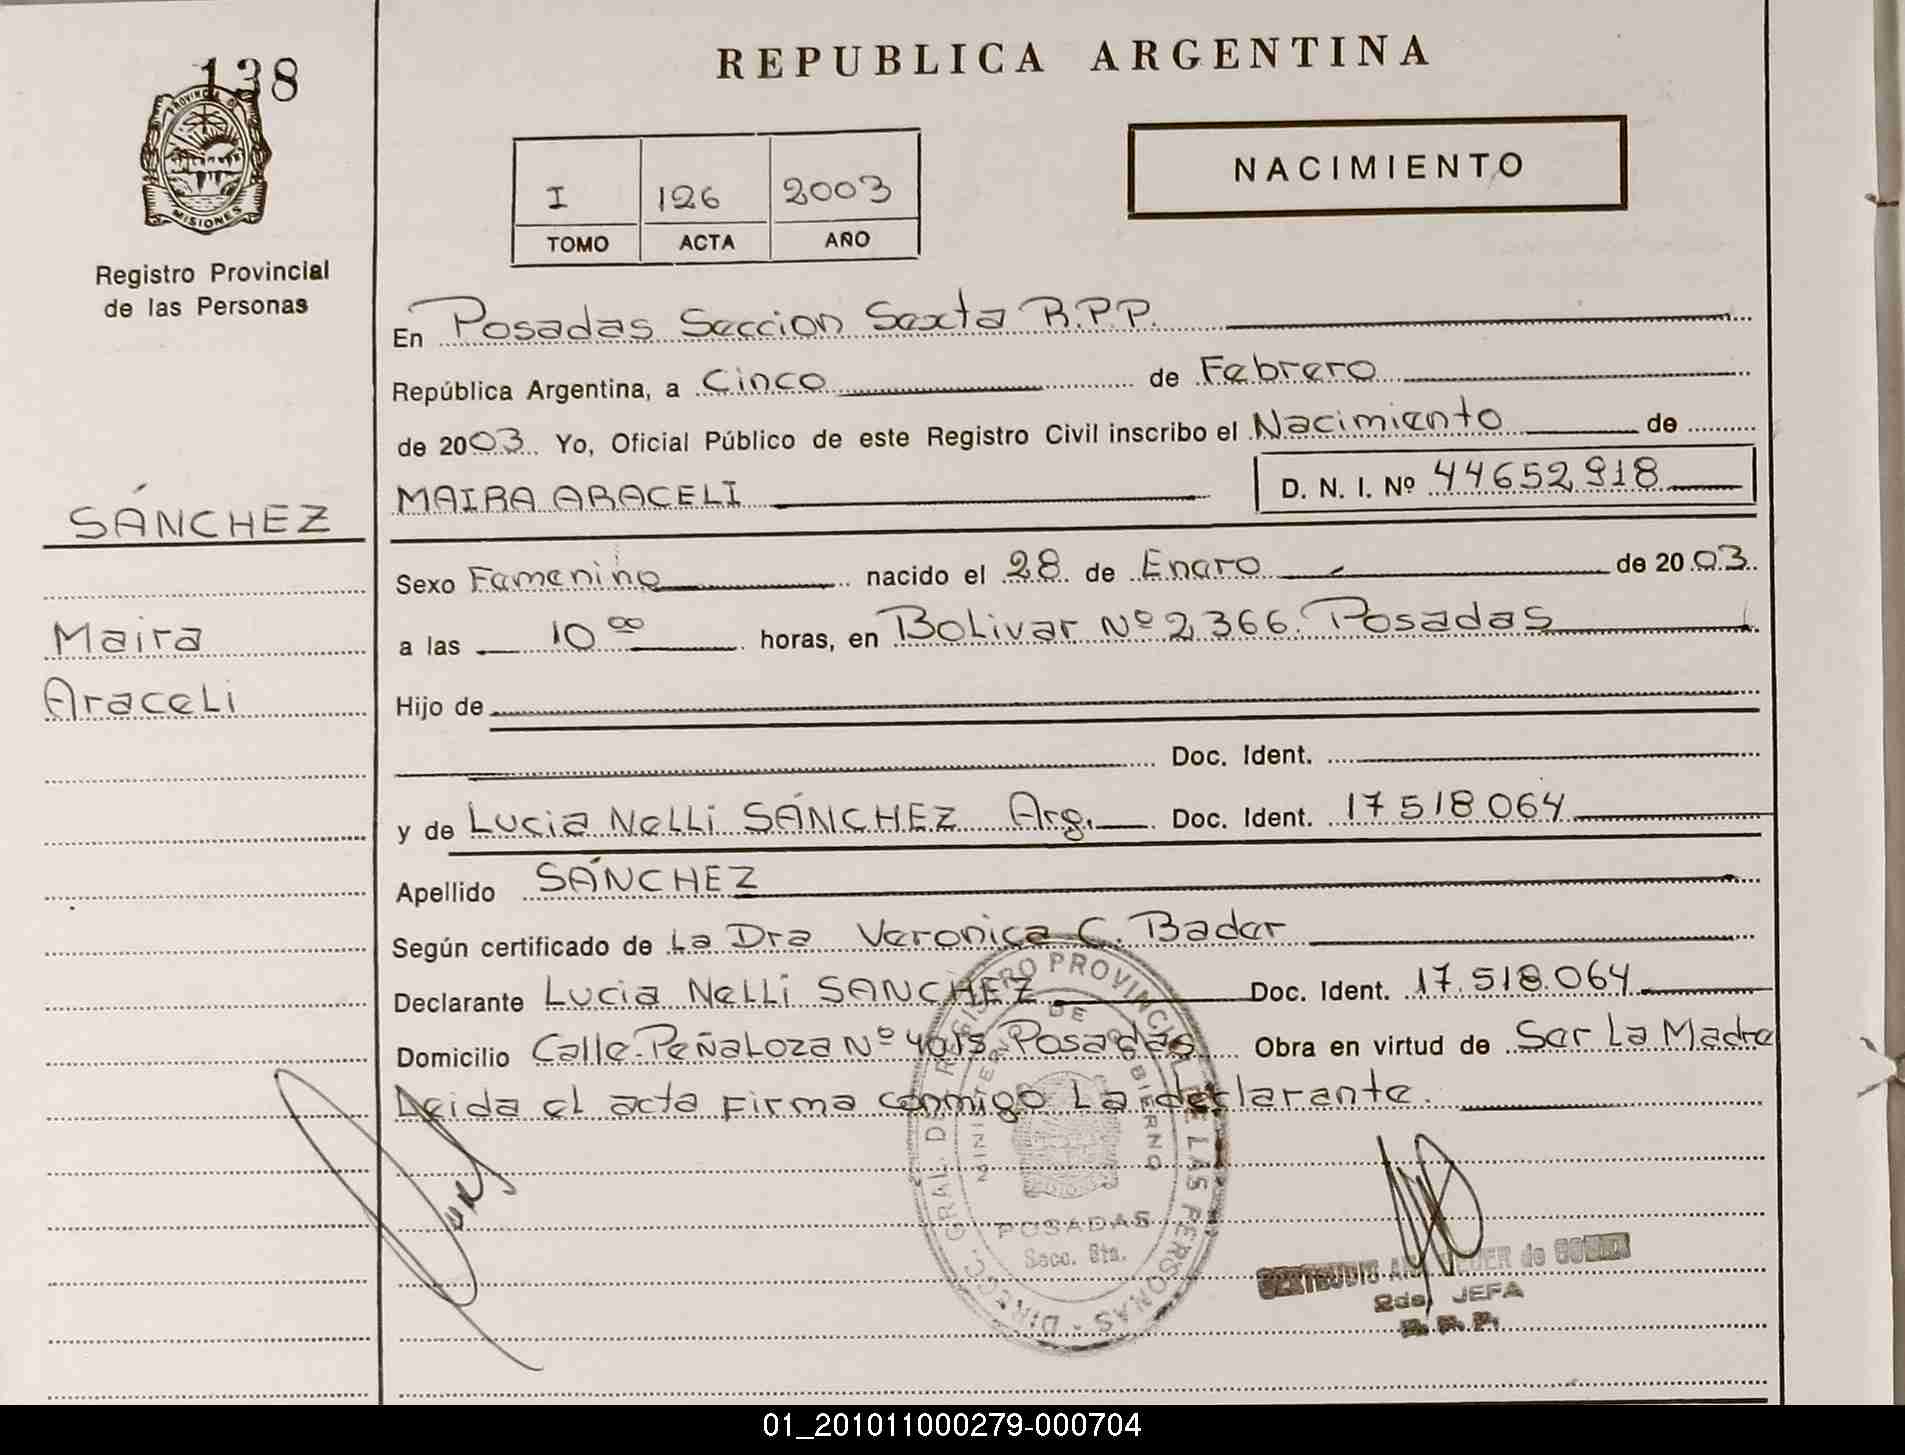 138
PROVINCIA DE
MISIONES
Registro Provincial
de las Personas
REPUBLICA ARGENTINA
NACIMIENTO
I 126 2003
TOMO ACTA AÑO
En Posadas Seccion Sexta R.P.P.
República Argentina, a Cinco de Febrero
de 2003. Yo, Oficial Público de este Registro Civil inscribo el Nacimiento de
MAIRA ARACELI D. N. I. Nº 44652918
SÁNCHEZ
Maira
Araceli
Sexo Femenino nacido el 28 de Enero de 2003.
a las 10 00 horas, en Bolivar Nº 2366. Posadas
Hijo de
Doc. Ident.
y de Lucia Nelli SÁNCHEZ Arg. Doc. Ident. 17518064
Apellido SÁNCHEZ
Según certificado de La Dra Veronica C. Bader
Declarante Lucia Nelli SANCHEZ Doc. Ident. 17.518.064
Domicilio Calle Peñaloza Nº Posadas Obra en virtud de Ser La Madre
Leida el acta Firma conmigo La declarante.
DIRECC. GRAL. DE REGISTRO PROVINCIAL DE LAS PERSONAS
MINISTERIO DE GOBIERNO
POSADAS
Secc. 6ta.
GERTRUDIS de
2da. JEFA
R. P. P.
01_201011000279-000704